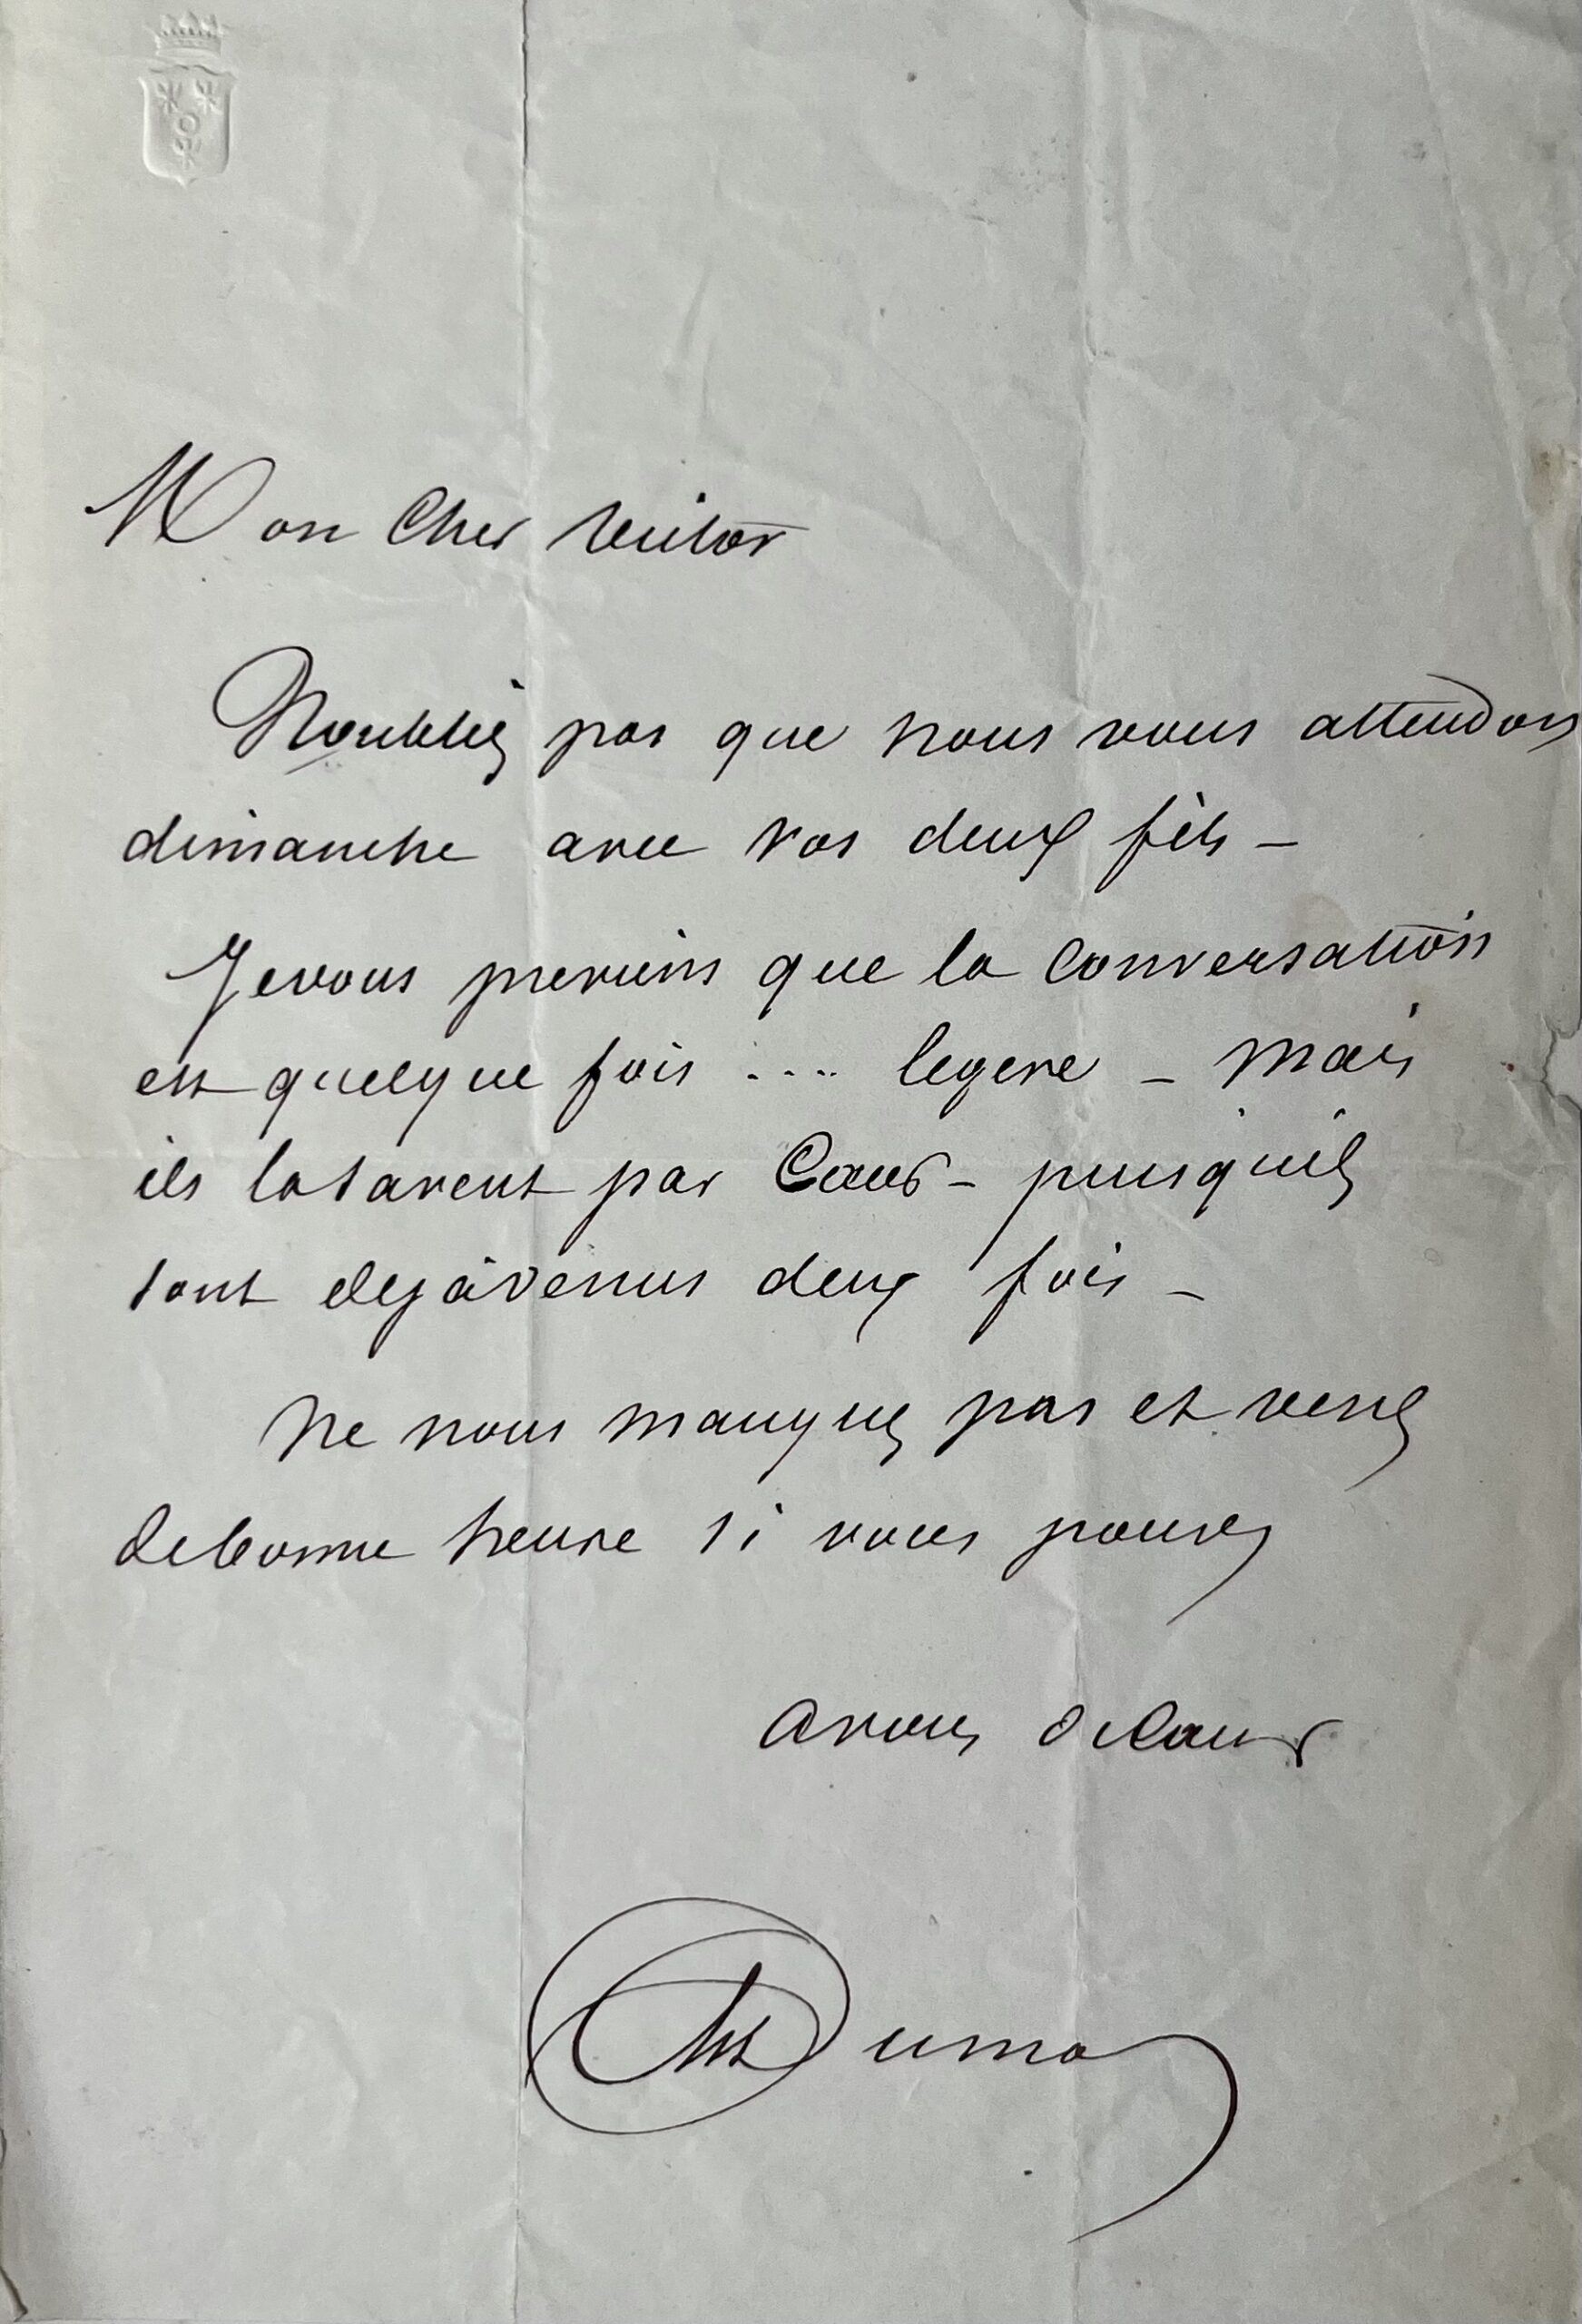 Mon Cher
Noubliez pas que nous vous attendons
dimanche avec vos deux fils –
Je vous previens que la Conversation
est quelque fois .... legere – Mais
ils la savent par Cœur – puisquils
sont deja venus deux fois –
Ne nous manquez pas et venez
de bonne heure si vous pouvez
A vous de Cœur
Alex Dumas